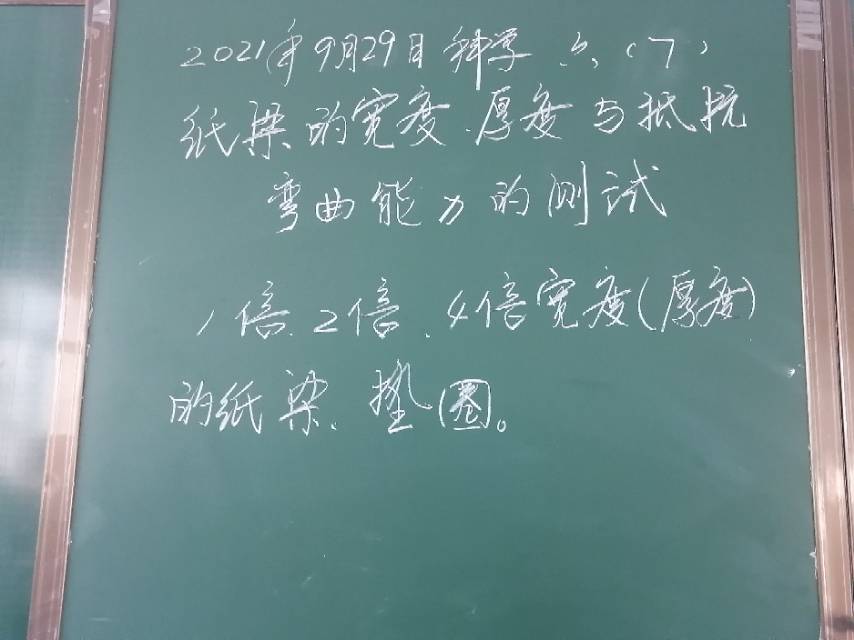 2021年9月29日 科学 六（7）
纸梁的宽度、厚度与抵抗
弯曲能力的测试
1倍、2倍、4倍宽度(厚度)
的纸梁、垫圈。